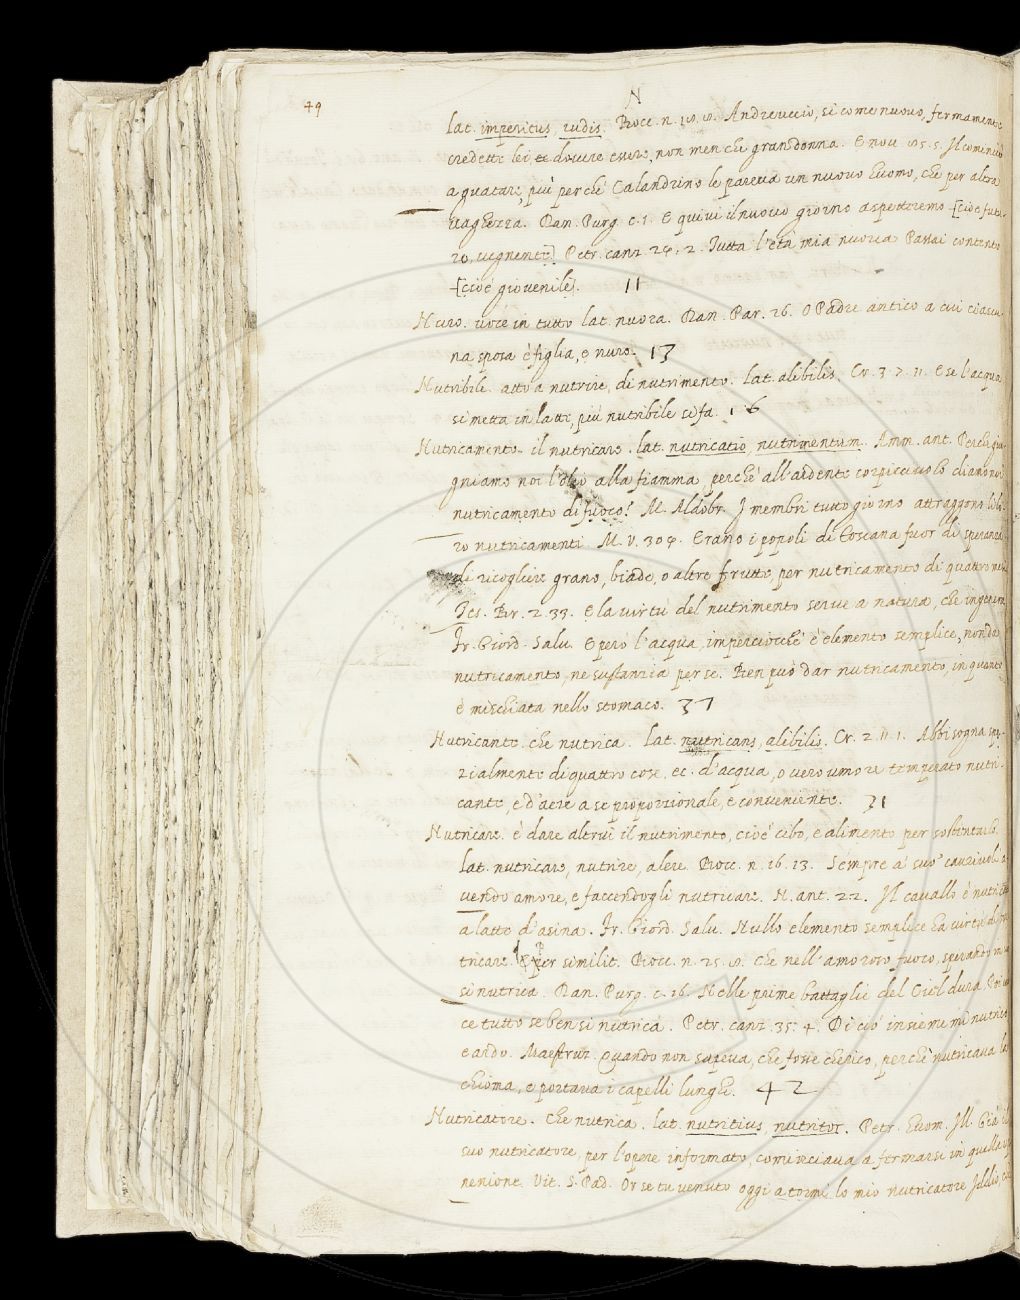 49
N
lat. imperitus, rudis. Bocc. n. 15. 8. Andreuccio, si come nuouo, fermamente
credette lei douere essere, non men che gran donna. E nou. 85. 5. Il cominciò
a guatare, più perche Calandrino le pareua un nuouo huomo, che per altra
uaghezza. Dan. Purg. c. 1. E quiui il nuouo giorno aspetteremo [cioè futu-
ro, uegnente] Petr. canz. 2. Tutta l'età mia nuoua Passai contento
[cioè giouenile]. 11
Nuro. uoce in tutto lat. nuora. Dan. Par. 26. O Padre antico a cui ciascu
na sposa è figlia, e nuro. 13
Nutribile. atto a nutrire, di nutrimento. lat. alibilis. Cr. 3. 7. 11. E se l'acqua
si metta in latte, più nutribile si fa. 16
Nutricamento. il nutricare. lat. nutricatio, nutrimentum. Amm. ant. Perche giu
gniamo noi l'olio alla fiamma, perche all'ardente corpicciuolo diamo noi
nutricamento di fuoco? M. Aldobr. I membri tutto giorno attraggono li lo
ro nutricamenti M. V. 3. Erano i popoli di Toscana fuor di speranza
di ricogliere grano, biade, o altre frutte, per nutricamento di quattro me
Tes. Br. 2. 33. E la uirtù del nutrimento serue a natura, che ingenera
Fr. Giord. Salu. E però l'acqua, imperciocche è elemento semplice, non da
nutricamento, ne sustanzia per se. Ben può dar nutricamento, in quanto
è mischiata nello stomaco. 37
Nutricante. che nutrica. lat. nutricans, alibilis. Cr. 2. 11. 1. Abbisogna spe-
zialmente di quattro cose. ec. d'acqua, o uero umore temperato nutri-
cante, e d'aere a se proporzionale, e conueniente. 31
Nutricare. è dare altrui il nutrimento, cioè cibo, e alimento per sostentarlo.
lat. nutricare, nutrire, alere. Bocc. n. 16. 13. Sempre a' suo' cauriuoli a
uendo amore, e faccendogli nutricare. N. ant. 22. Il cauallo è nutrito
a latte d'asina. Fr. Giord. Salu. Nullo elemento semplice ha uirtù di nu
tricare. per similit. Bocc. n. 25. 8. che nell'amoroso fuoco, sperando
si nutrica. Dan. Purg. c. 16. Nelle prime battaglie del Ciel dura Poi uin
ce tutto se ben si nutrica. Petr. canz. 35. 4. Di ciò insieme mi nutrico
e ardo. Maestruz. Quando non sapeua, che fosse cherico, perche nutricaua la
chioma, e portaua i capelli lunghi. 42
Nutricatore. che nutrica. lat. nutritius, nutritor. Petr. huom. Ill. Già il
suo nutricatore, per l'opere informato, cominciaua a fermarsi in quella
nenione. Vit. S. Pad. Or se tu uenuto oggi a tormi lo mio nutricatore Iddio,